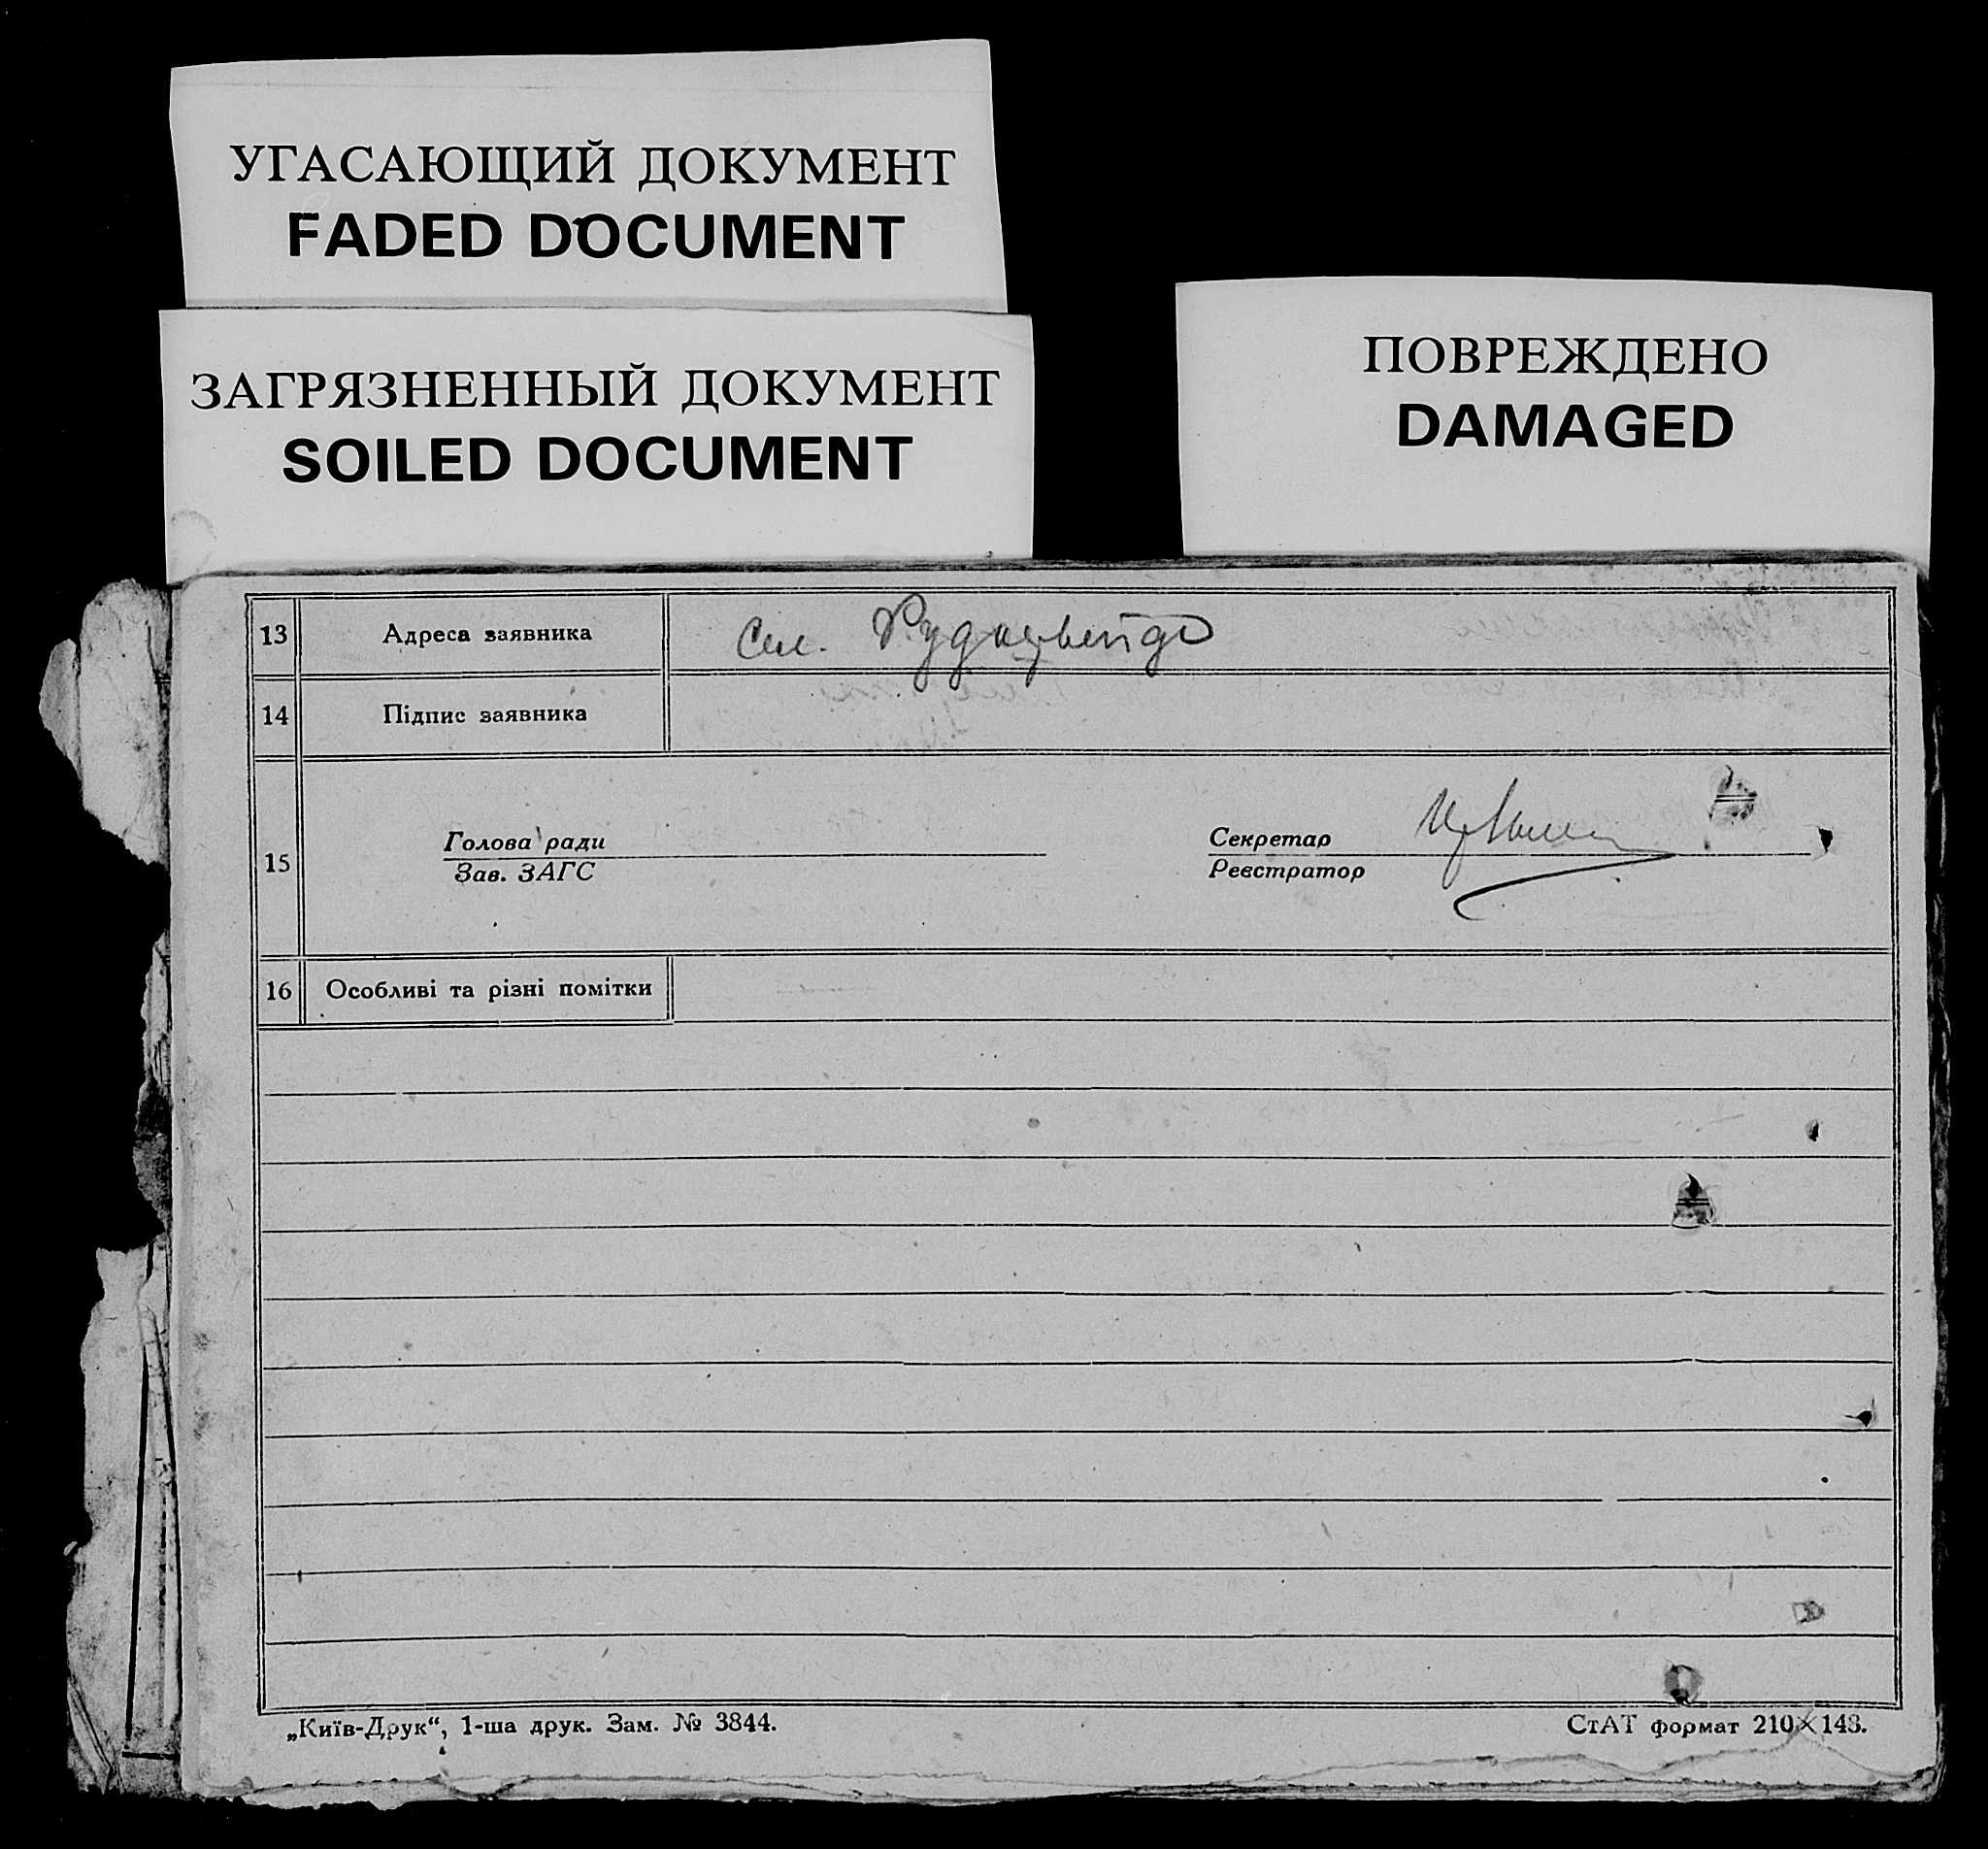 УГАСАЮЩИЙ ДОКУМЕНТ
FADED DOCUMENT
ЗАГРЯЗНЕННЫЙ ДОКУМЕНТ
SOILED DOCUMENT
ПОВРЕЖДЕНО
DAMAGED
13 Адреса заявника Сел.
14 Підпис заявника
15 Голова ради Секретар
Зав. ЗАГС Реєстратор
16 Особливі та різні помітки
„Київ-Друк“, 1-ша друк. Зам. № 3844. СтАТ формат 210×148.